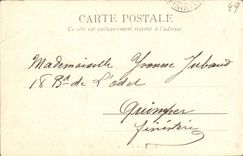 CARTE POSTALE
Ce côté est exclusivement réservé à l'adresse.
69
Mademoiselle Yvonne
18 Bd de l'Odet
Quimper
finistère